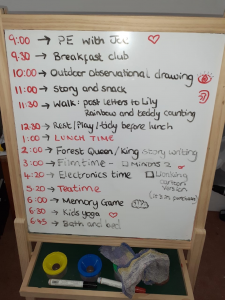 9:00 → PE with Joe
9:30 → Breakfast club
10:00 → Outdoor observational drawing
11:00 → Story and snack
11:30 → Walk: post letters to Lily
Rainbow and teddy counting
12:30 → Rest/Play/tidy before lunch
1:00 → LUNCH TIME
2:00 → Forest Queen/King story writing
3:00 → Filmtime - MINIONS 2
4:20 → Electronics time Working
cartoon
version
5:20 → Teatime
6:00 → Memory Game
6:30 → Kids yoga
6:45 → Bath and bed